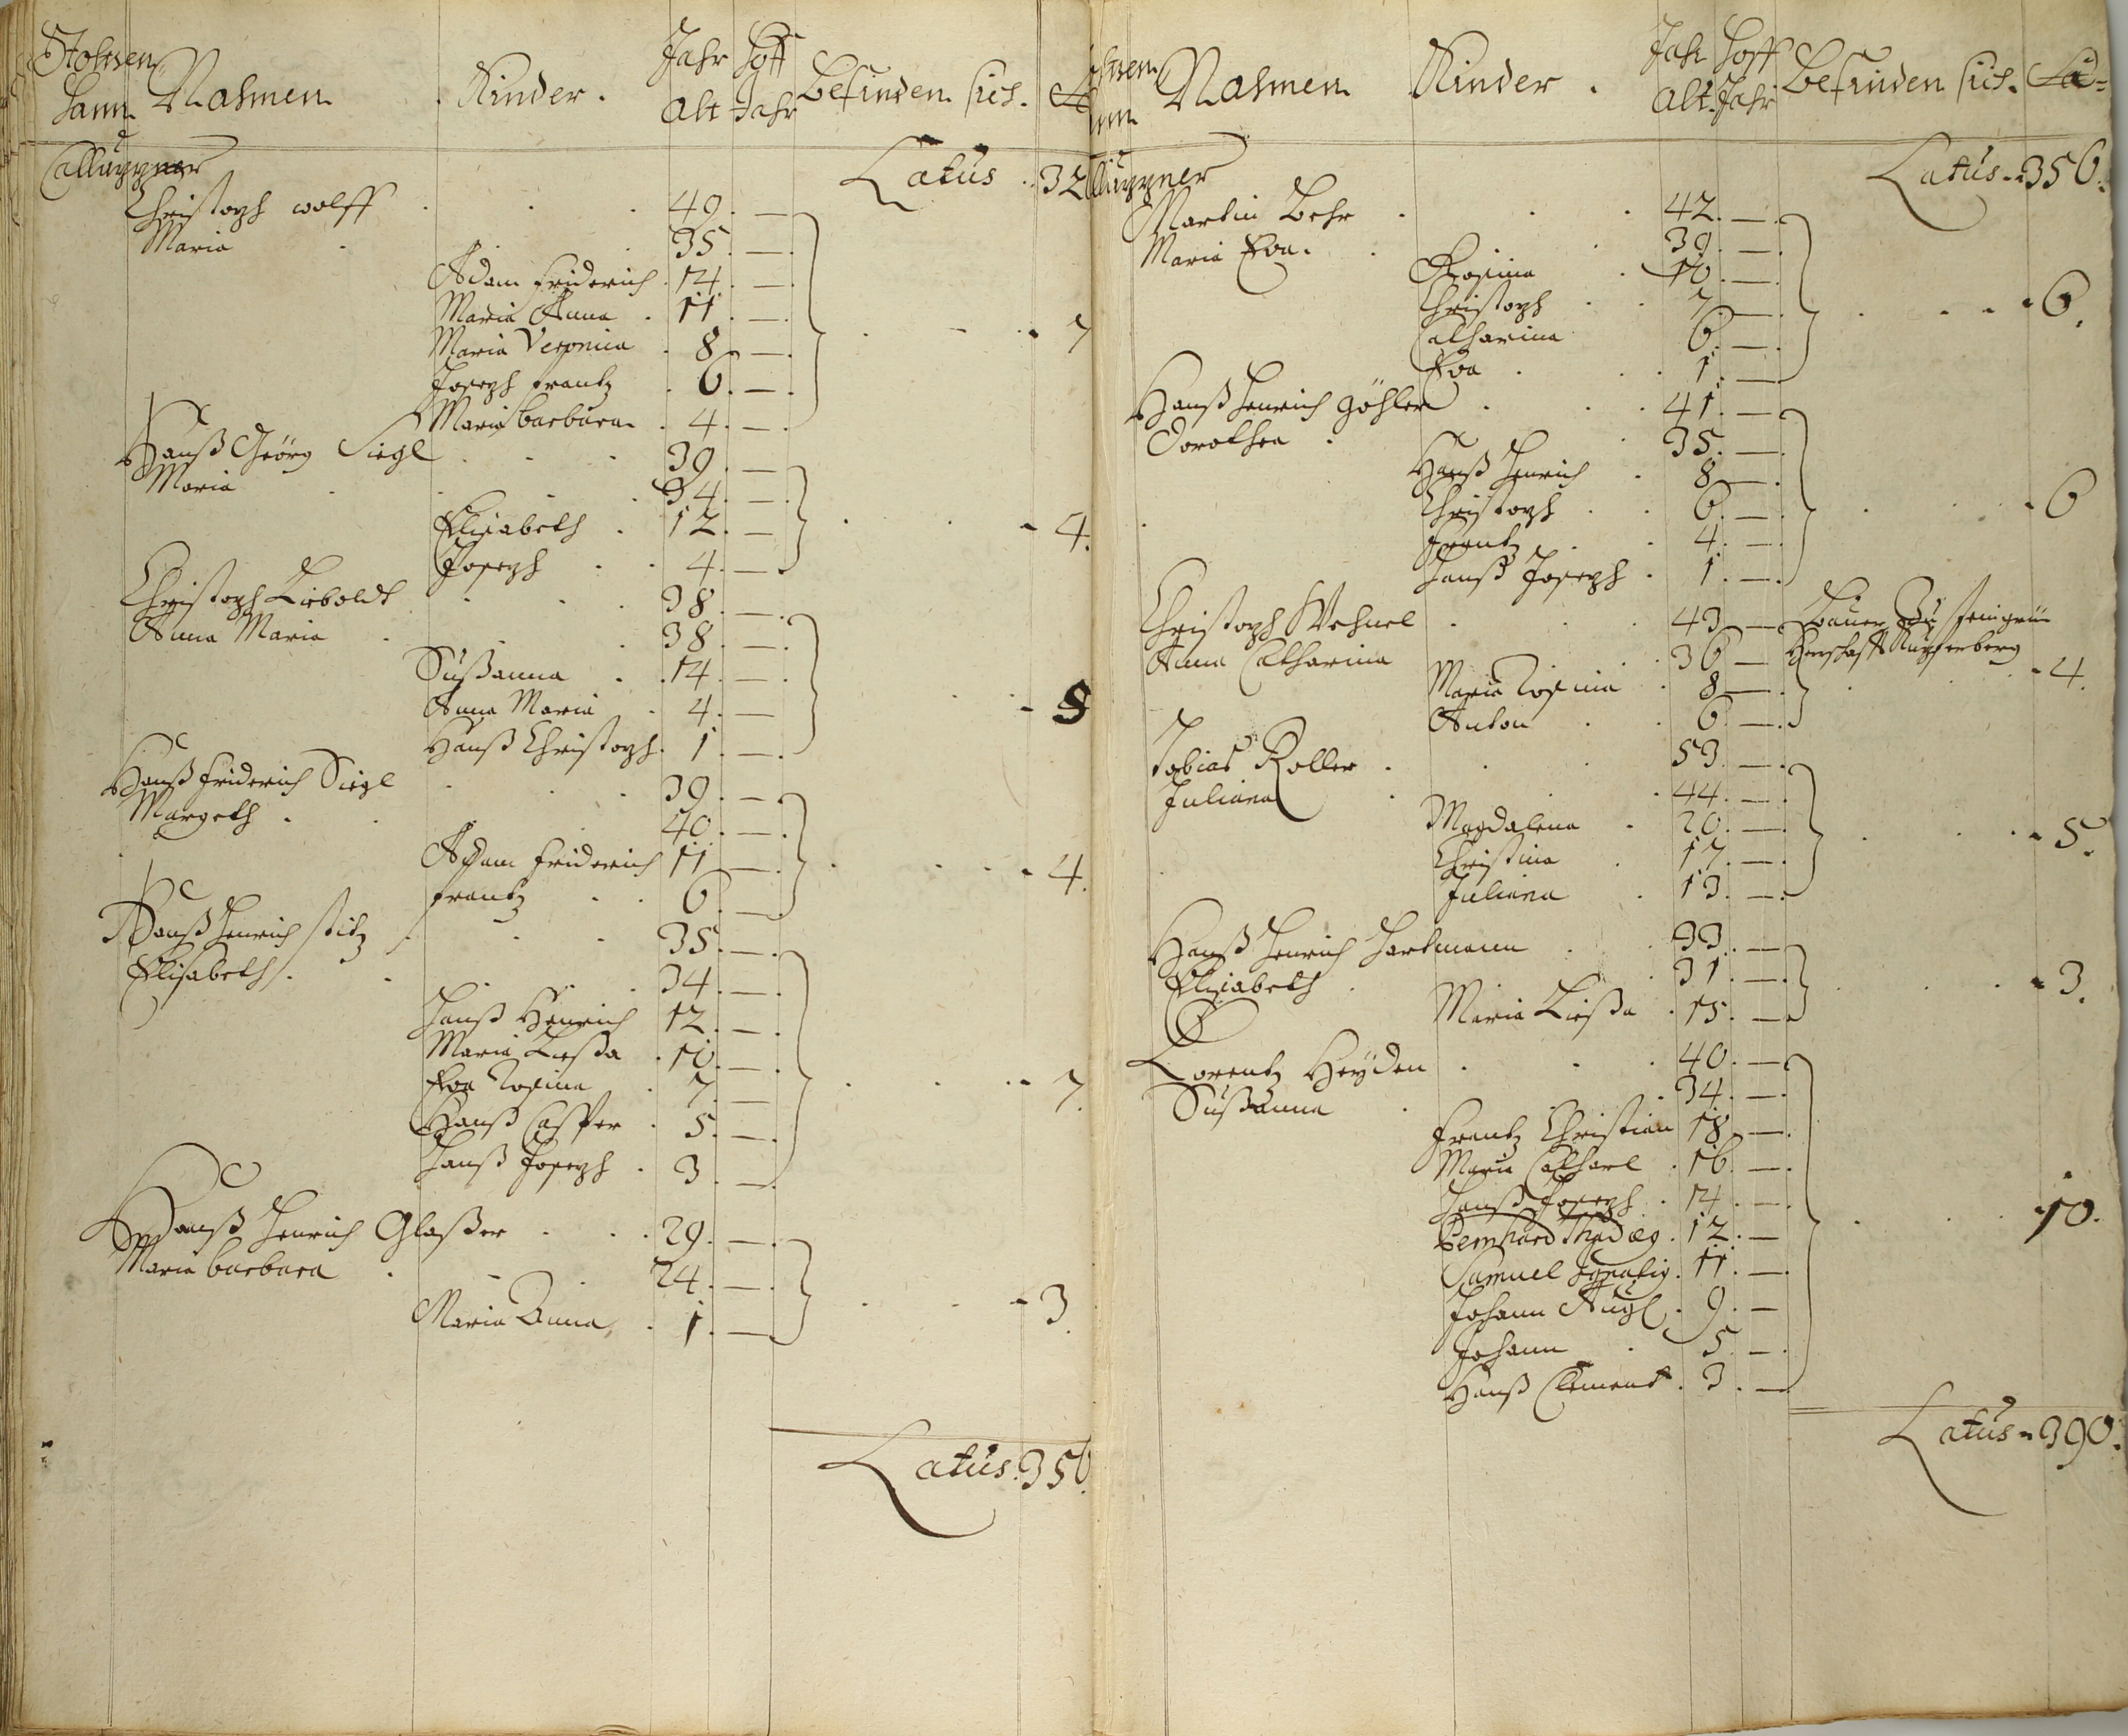 Nahmen Kinder. Jahr Alt Hoff Jahr Befinden sich.
Calluppner
Latus 32
Christoph wolff 49. —
Maria 35. —
Adam Friderich 14. —
Maria Anna 11. —
Maria Veronica 8. —
Joseph Frantz 6. —
Maria barbara 4. —
7
Hanß Geörg Siegl 39. —
Maria 34. —
Elisabeth 12. —
Joseph 4. —
4.
Christoph Lieboldt 38. —
Anna Maria 38. —
Sußanna 14. —
Anna Maria 4. —
Hanß Christoph 1. —
5
Hanß Friderich Siegl 39. —
Margeth 40. —
Adam Friderich 11. —
Frantz 6. —
4.
Hanß Henrich Stitz 35. —
Elisabeth 34. —
Hanß Henrich 12. —
Maria Ließa 10. —
Eva Rosina 7. —
Hanß Casper 5. —
Hanß Joseph 3. —
7.
Hanß Henrich Glaßer 29. —
Maria barbara 24. —
Maria Anna 1. —
3.
Latus. 356.
Nahmen Kinder. Jahr Alt Hoff Jahr Befinden sich.
Latus 356.
Martin Behr 42. —
Maria Eva. 39. —
Rosina 10. —
Christoph 7. —
Catharina 6. —
Eva 1. —
6.
Hanß Henrich Göhler 41. —
Dorothea 35. —
Hanß Henrich 8. —
Christoph 6. —
Frantz 4. —
Hanß Joseph 1. —
6
Christoph Wehnel 43. — Bauer Zu Steingrün
Anna Catharina 36. — Herschafft Kupferberg
Maria Rosina 8. —
Anton 6. —
4.
Tobias Roller 53. —
Juliana 44. —
Magdalena 20. —
Christina 17. —
Juliana 13. —
5.
Hanß Henrich Hartmann 33. —
Elisabeth 31. —
Maria Ließa 15. —
3.
Lorentz Heÿden 40. —
Sußanna 34. —
Frantz Christian 18. —
Maria Catharl 16. —
Hanß Joseph 14. —
Bernhard 12. —
Samuel Ignatig 11. —
Johann Augl 9. —
Johann 5. —
Hanß Clement 3. —
10.
Latus 390.